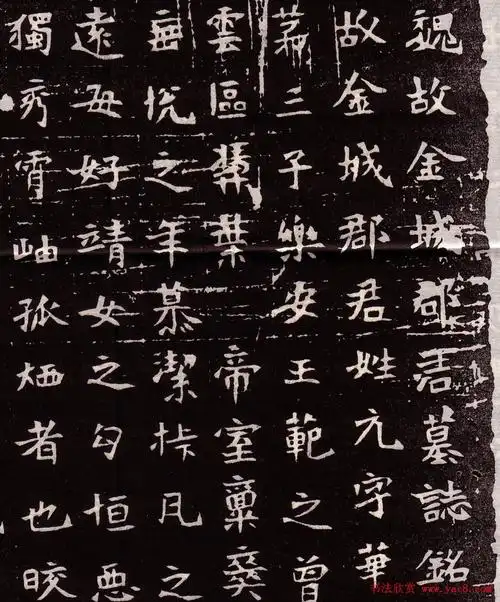 魏故金城郡君墓誌銘
故金城郡君姓元字華
三子樂安王範之曾
雲區葉帝室稟
悅之年慕潔凡之
遠毎好靖女之句恒惡
獨秀霄岫孤者也晈
书法欣赏 www.yac8.com